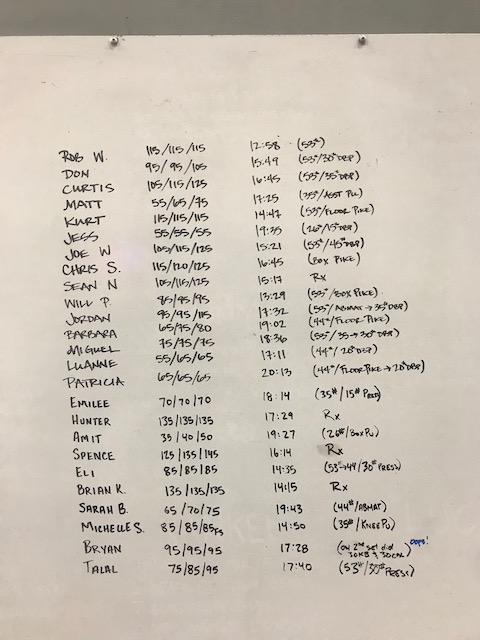 ROB W. 115/115/115 12:58 (53#)
DON 95/95/105 15:49 (53#/30# DBP)
CURTIS 105/115/125 16:45 (53#/35# DBP)
MATT 55/65/75 17:25 (35#/ASST PU)
KURT 115/115/115 14:47 (53#/FLOOR PIKE)
JESS 55/55/55 19:35 (26#/15# DBP)
JOE W 105/115/125 15:21 (53#/45# DBP)
CHRIS S. 115/120/125 16:45 (BOX PIKE)
SEAN N 105/115/125 15:17 Rx
WILL P. 85/95/95 13:29 (53#/BOX PIKE)
JORDAN 95/95/115 17:32 (53#/ABMAT → 35# DBP)
BARBARA 65/75/80 19:02 (44#/FLOOR PIKE)
MIGUEL 75/75/75 18:36 (53#/35 → 30# DBP)
LUANNE 55/65/65 17:11 (44#/20# DBP)
PATRICIA 65/65/65 20:13 (44#/FLOOR PIKE → 20# DBP)
EMILEE 70/70/70 18:14 (35#/15# PRESS)
HUNTER 135/135/135 17:29 Rx
AMIT 35/40/50 19:27 (26#/BOX PU)
SPENCE 125/135/145 16:14 Rx
ELI 85/85/85 14:35 (53#→44/30# PRESS)
BRIAN K. 135/135/135 14:15 Rx
SARAH B. 65/70/75 19:43 (44#/ABMAT)
MICHELLE S. 85/85/85 14:50 (35#/KNEE PU)
BRYAN 95/95/95 17:28 (ON 2nd set did 30 KB & 30 CAL) OOPS!
TALAL 75/85/95 17:40 (53#/35# PRESS)